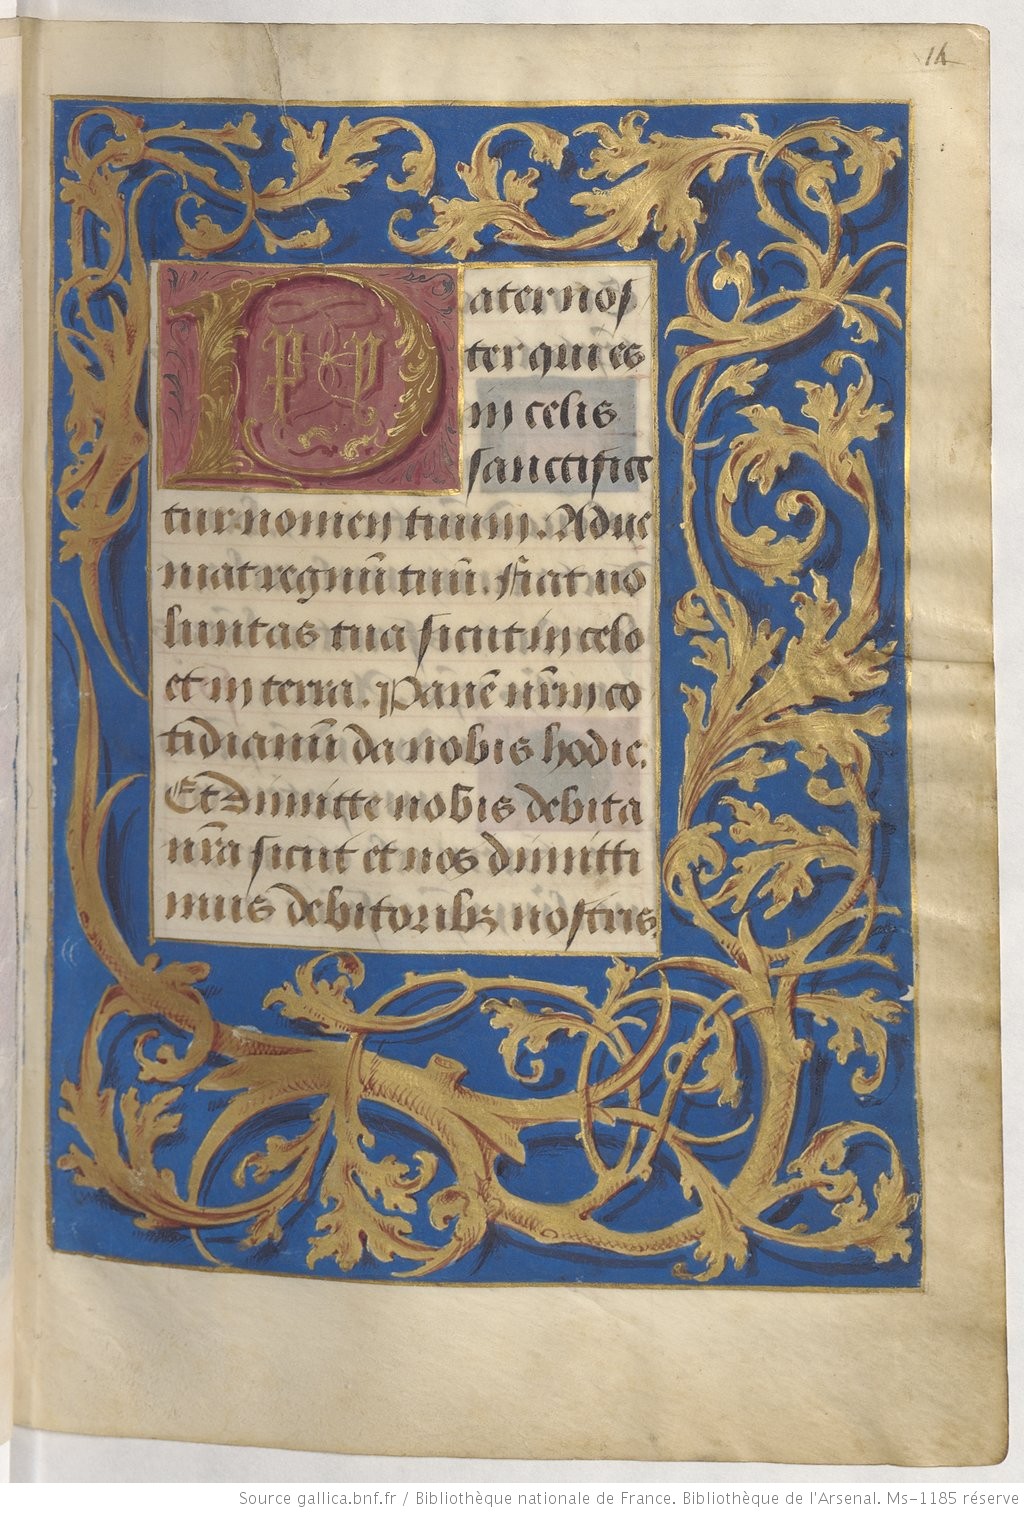 14
Pater nos
p p
ter qui es
in celis
sanctifice
tur nomen tuum. Adue
niat regnū tuū. Fiat uo
luntas tua sicut in celo
et in terra. Panē nr̄m co
tidianū da nobis hodie.
Et dimitte nobis debita
nr̄a sicut et nos dimitti
mus debitoribꝫ nostris.
Source gallica.bnf.fr / Bibliothèque nationale de France. Bibliothèque de l'Arsenal. Ms-1185 réserve